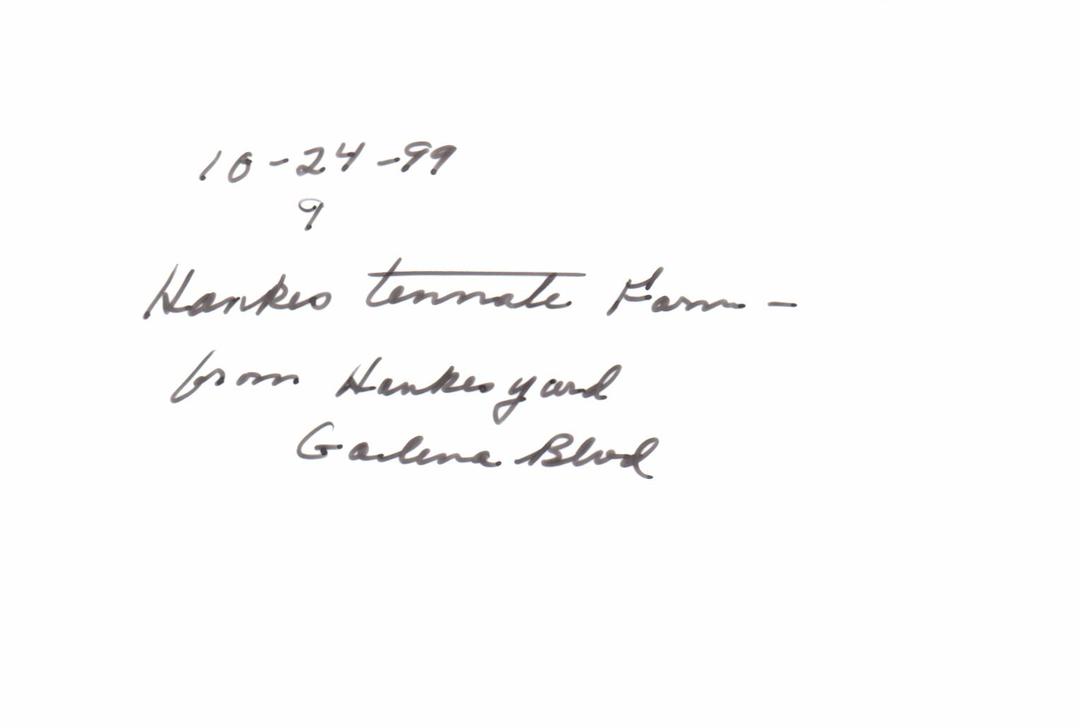 10-24-99
9
Hankes tennate Farm -
from Hankes yard
Galena Blvd